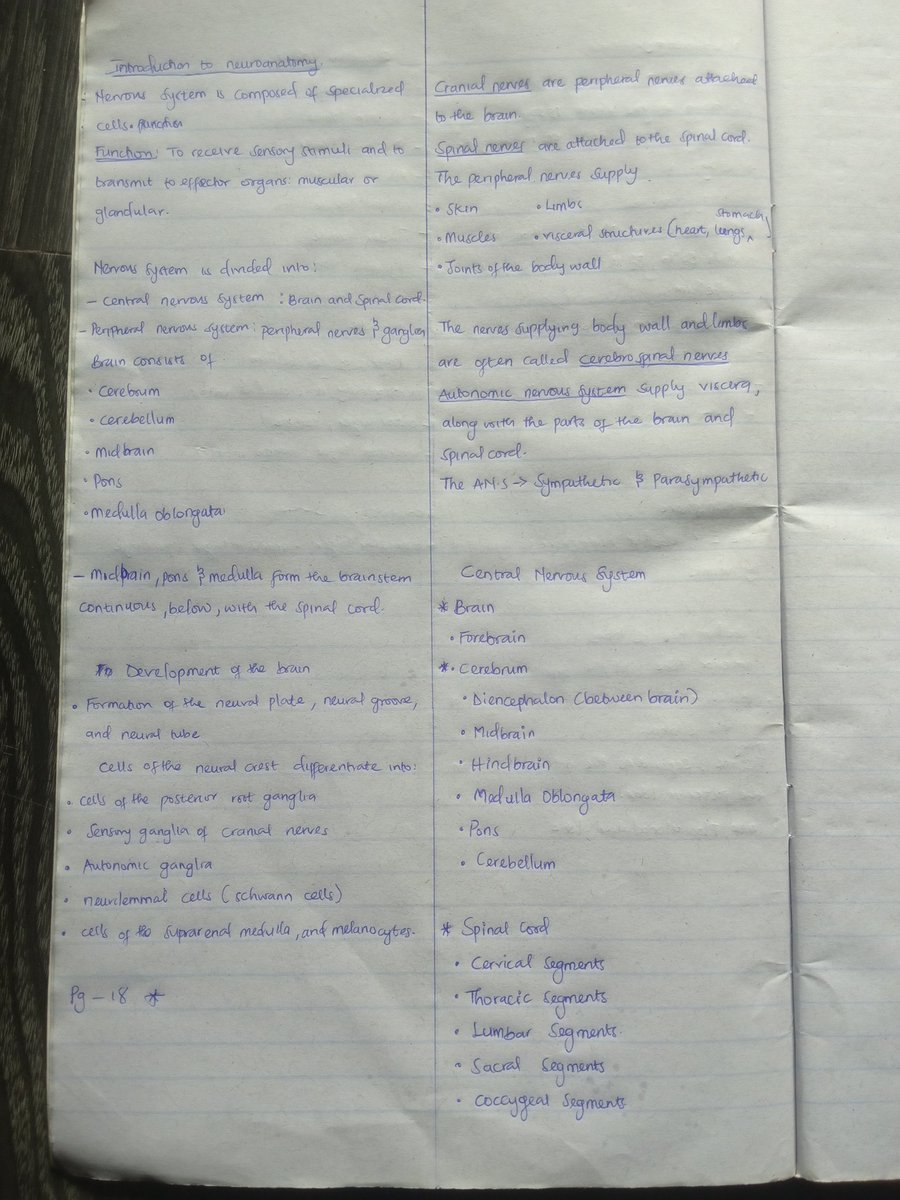 Introduction to neuroanatomy.
Nervous system is composed of specialized
cells. function
Function: To receive sensory stimuli and to
transmit to effector organs: muscular or
glandular.
Nervous system is divided into:
- Central nervous system : Brain and spinal cord.
- Peripheral nervous system: peripheral nerves & ganglia
Brain consists of
• Cerebrum
• cerebellum
• midbrain
• Pons
• medulla oblongata
- Midbrain, pons & medulla form the brainstem
continuous, below, with the spinal cord.
Development of the brain
• Formation of the neural plate, neural groove,
and neural tube
Cells of the neural crest differentiate into:
• cells of the posterior root ganglia
• Sensory ganglia of cranial nerves
• Autonomic ganglia
• neurlemmal cells (schwann cells)
• cells of the suprarenal medulla, and melanocytes.
Pg - 18 *
Cranial nerves are peripheral nerves attached
to the brain.
Spinal nerves are attached to the spinal cord.
The peripheral nerves supply
• Skin • Limbs
• Muscles • visceral structures (heart, lungs, stomach)
• Joints of the body wall
The nerves supplying body wall and limbs
are often called cerebrospinal nerves
Autonomic nervous system supply viscera,
along with the parts of the brain and
spinal cord.
The A.N.S → Sympathetic & Parasympathetic
Central Nervous System
* Brain
• Forebrain
*• Cerebrum
• Diencephalon (between brain)
• Midbrain
• Hindbrain
• Medulla Oblongata
• Pons
• Cerebellum
* Spinal Cord
• Cervical segments
• Thoracic segments
• Lumbar segments.
• Sacral segments
• Coccygeal segments